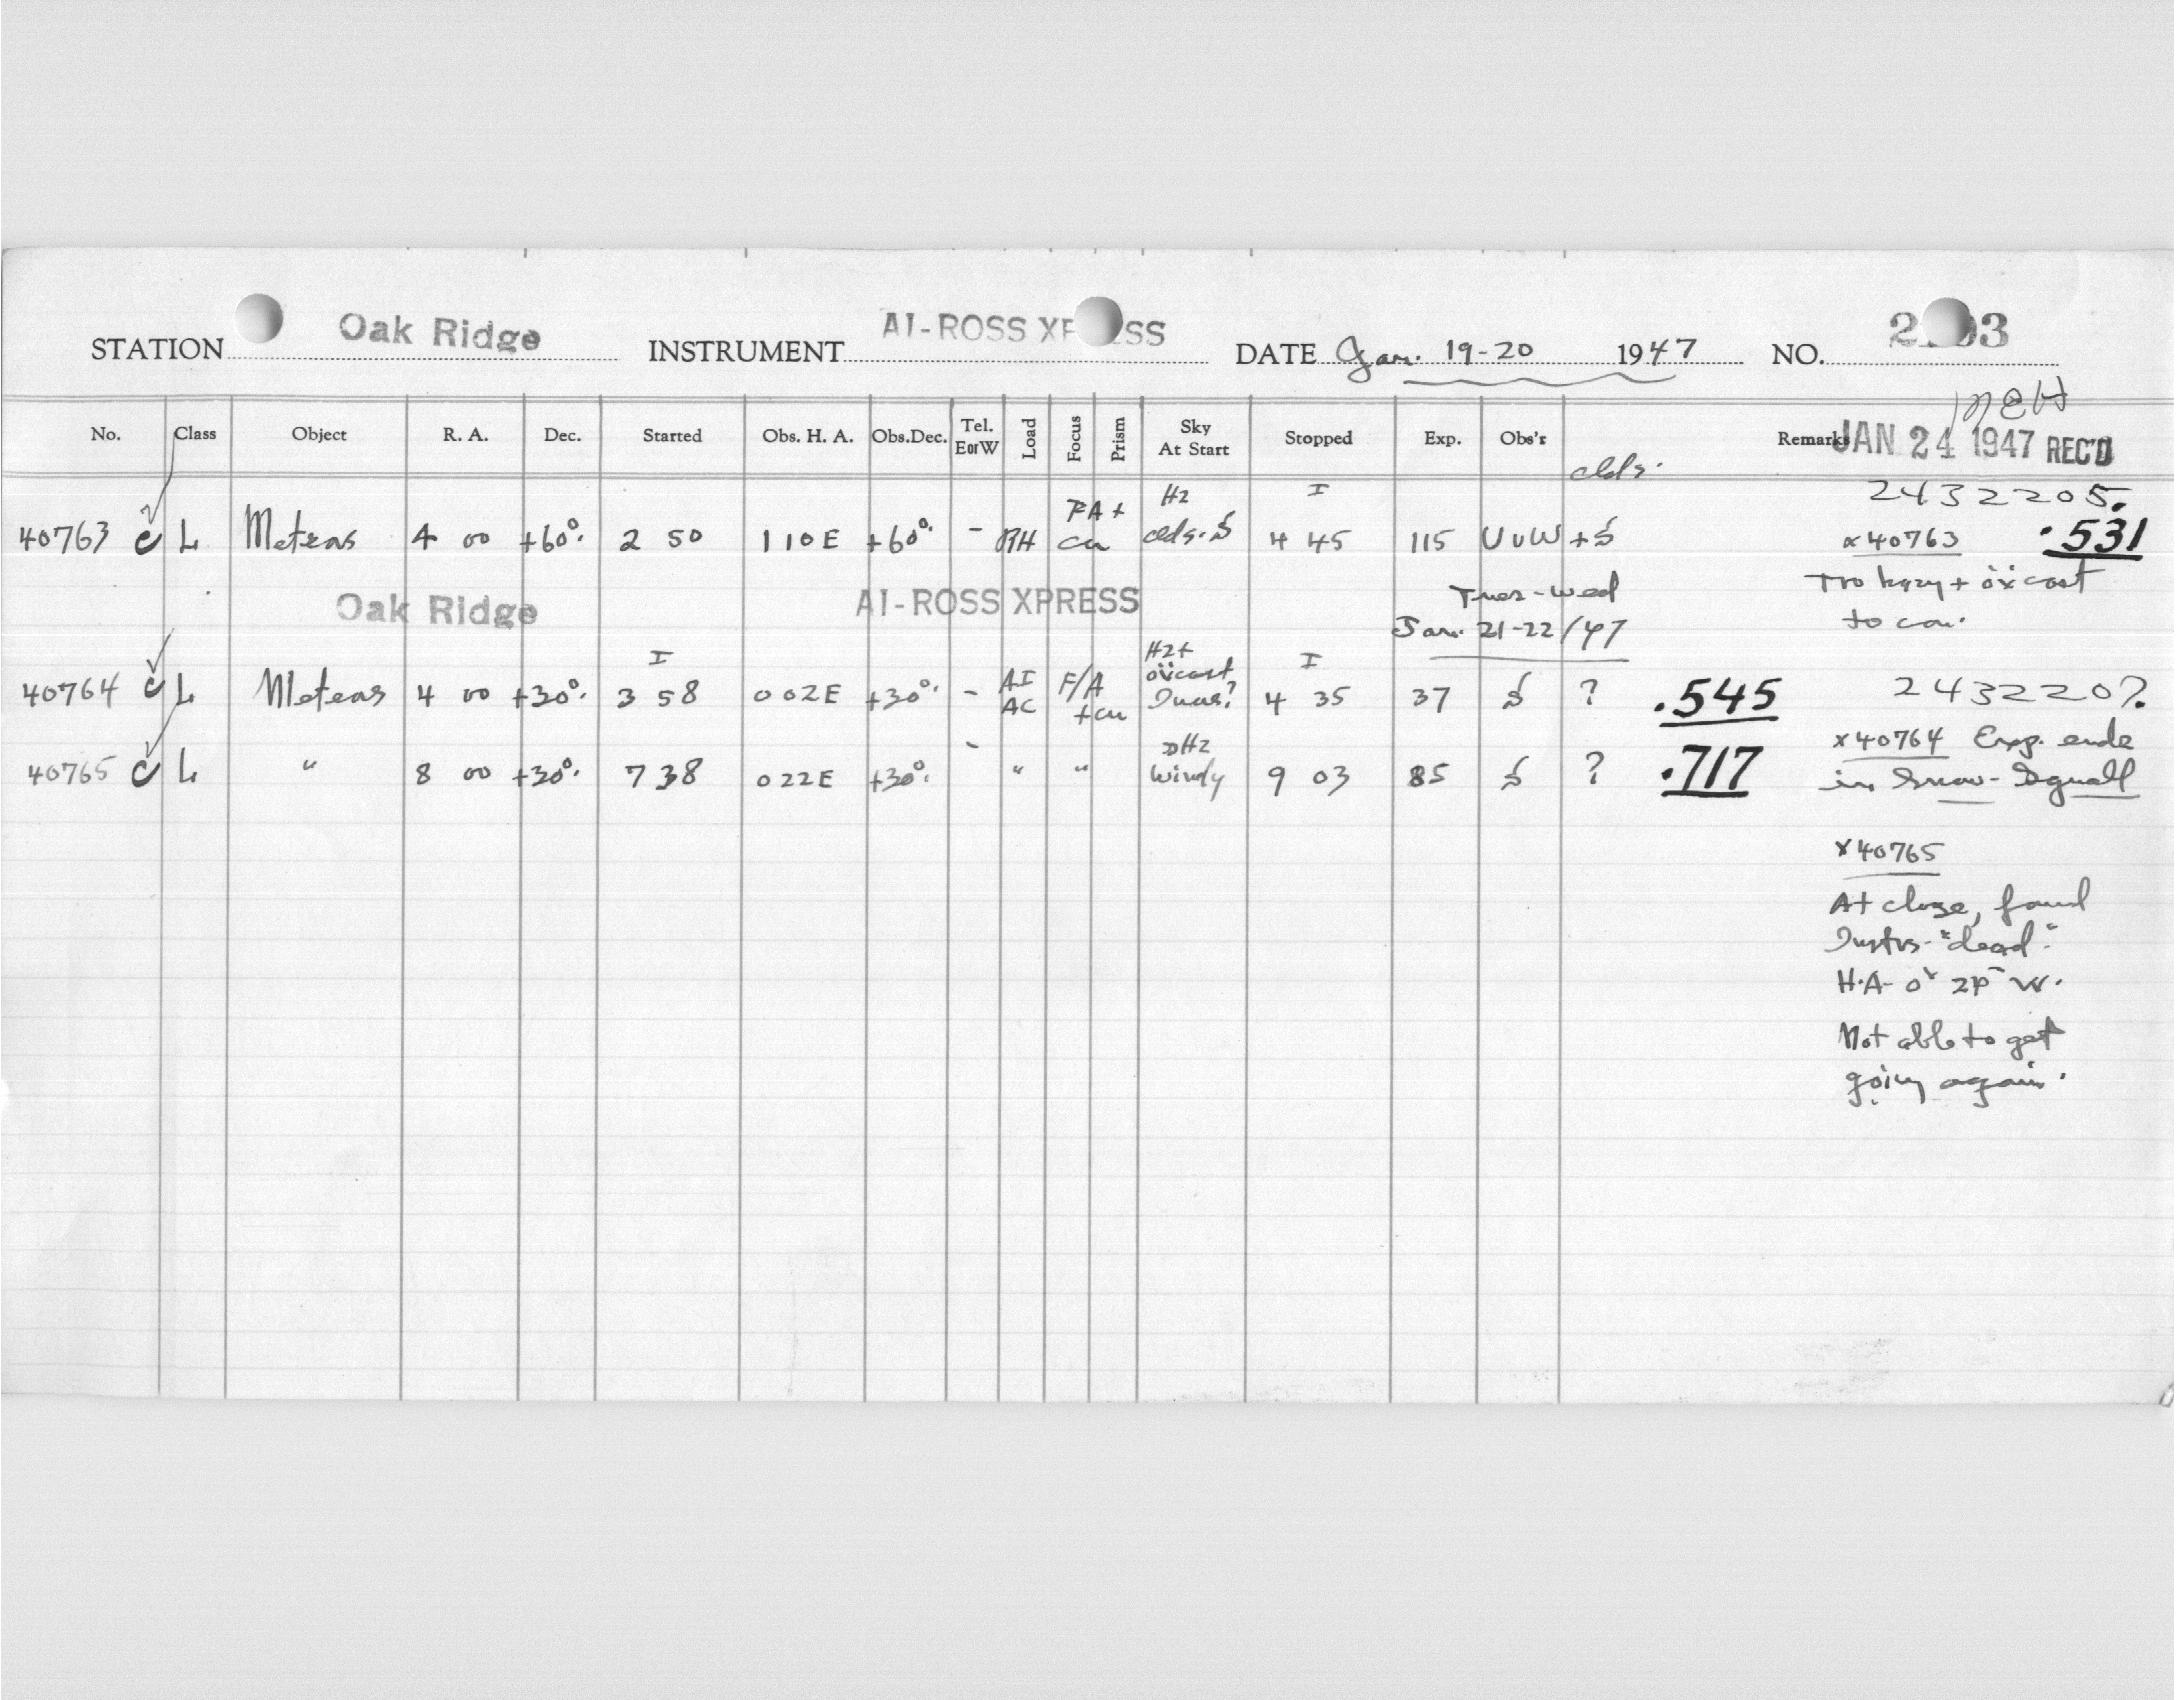 STATION Oak Ridge INSTRUMENT AI-ROSS XPRESS DATE Jan. 19-20 1947 NO. 2 03
No. Class Object R. A. Dec. Started Obs. H. A. Obs.Dec. Tel. EorW Load Focus Prism Sky At Start Stopped Exp. Obs'r Remarks JAN 24 1947 REC'D
clds.
40763 C L Meteors 4 00 +60°. 2 50 1 10E +60°. - RH FA+ cu Hz clds. I 4 45 115 UvW + 2432205.
x 40763 .531
Too hazy + o'cast
to con.
Oak Ridge AI-ROSS XPRESS Tues-Wed
Jan. 21-22/47
40764 C L Meteors 4 00 +30°. I 3 58 0 02E +30°. - AI AC F/A +cu Hz+ o'cast I 4 35 37 ? .545 2432207.
x 40764 Exp. ends
in Snow-Squall
40765 C L " 8 00 +30°. 7 38 0 22E +30°. - " " Hz Windy 9 03 85 ? .717
x 40765
At close, found
Instrs. "dead".
H.A- W.
Not able to get
going again.